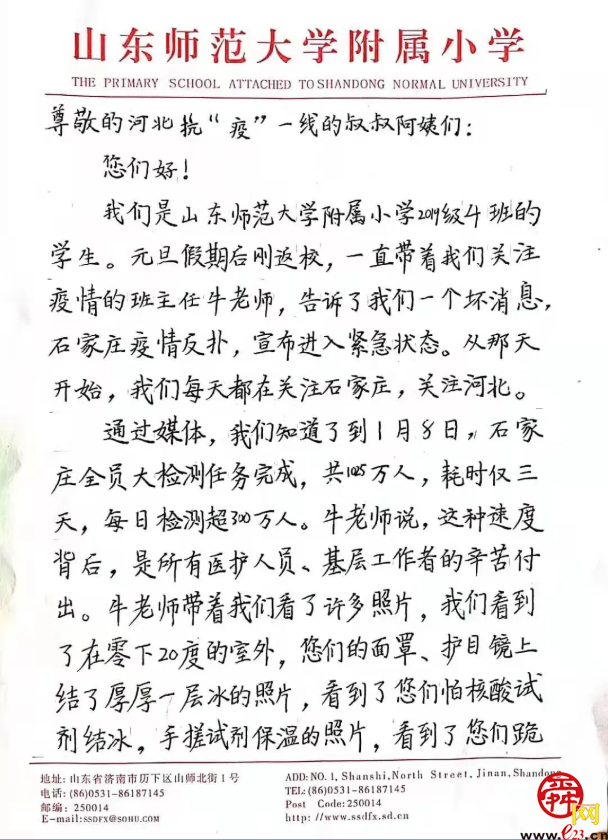 山东师范大学附属小学
THE PRIMARY SCHOOL ATTACHED TO SHANDONG NORMAL UNIVERSITY
尊敬的河北抗“疫”一线的叔叔阿姨们：
您们好！
我们是山东师范大学附属小学2019级4班的
学生。元旦假期后刚返校，一直带着我们关注
疫情的班主任牛老师，告诉了我们一个坏消息，
石家庄疫情反扑，宣布进入紧急状态。从那天
开始，我们每天都在关注石家庄，关注河北。
通过媒体，我们知道了到1月8日，石家
庄全员大检测任务完成，共1025万人，耗时仅三
天，每日检测超300万人。牛老师说，这种速度
背后，是所有医护人员、基层工作者的辛苦付
出。牛老师带着我们看了许多照片，我们看到
了在零下20度的室外，您们的面罩、护目镜上
结了厚厚一层冰的照片，看到了您们怕核酸试
剂结冰，手搓试剂保温的照片，看到了您们跪
地址：山东省济南市历下区山师北街1号
电话：(86)0531-86187145
邮编：250014
E-mail:SSDFX@SOHU.COM
ADD:NO.1, Shanshi,North Street, Jinan,Shandong
TEL:(86)0531-86187145
Post Code:250014
http://www.ssdfx.sd.cn
舜网
www.e23.cn